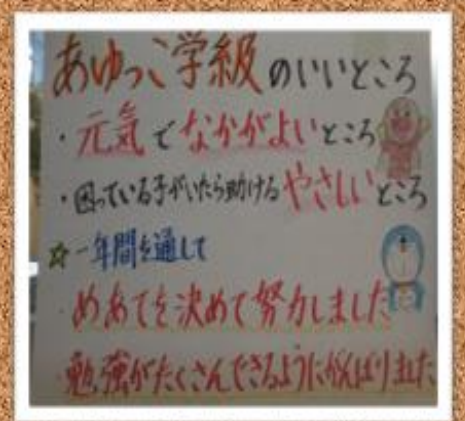 あゆっこ学級のいいところ
・元気でなかがよいところ
・困っている子がいたら助けるやさしいところ
☆一年間を通して
・めあてを決めて努力しました
・勉強がたくさんできるようにがんばりました